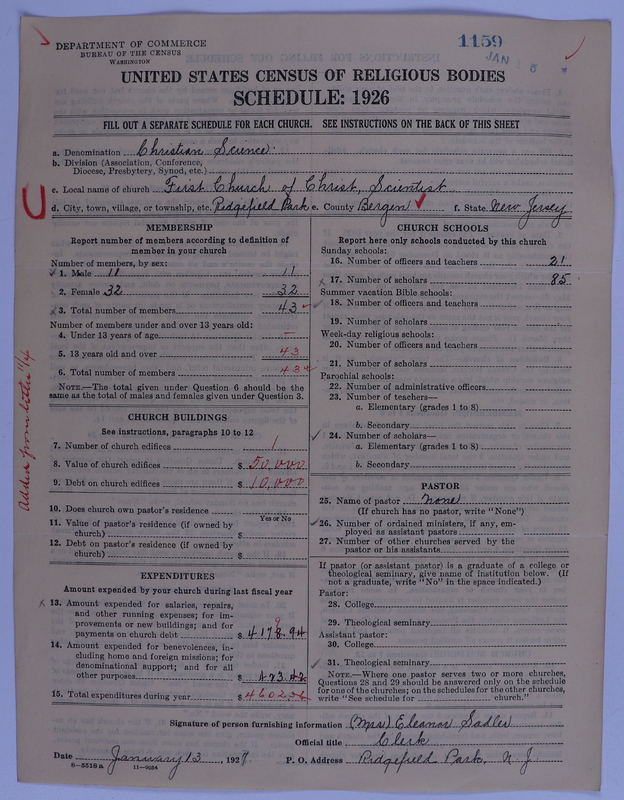 DEPARTMENT OF COMMERCE
BUREAU OF THE CENSUS
WASHINGTON
1159
JAN 5
UNITED STATES CENSUS OF RELIGIOUS BODIES
SCHEDULE: 1926
FILL OUT A SEPARATE SCHEDULE FOR EACH CHURCH. SEE INSTRUCTIONS ON THE BACK OF THIS SHEET
a. Denomination Christian Science.
b. Division (Association, Conference,
Diocese, Presbytery, Synod, etc.)
c. Local name of church First Church of Christ, Scientist
d. City, town, village, or township, etc. Ridgefield Park e. County Bergen f. State New Jersey
MEMBERSHIP
Report number of members according to definition of
member in your church
Number of members, by sex:
1. Male 11 11
2. Female 32 32
3. Total number of members 43
Number of members under and over 13 years old:
4. Under 13 years of age —
5. 13 years old and over 43
6. Total number of members 43
NOTE.—The total given under Question 6 should be the
same as the total of males and females given under Question 3.
CHURCH BUILDINGS
See instructions, paragraphs 10 to 12
7. Number of church edifices 1
8. Value of church edifices $ 50,000
9. Debt on church edifices $ 10,000
10. Does church own pastor's residence?
Yes or No
11. Value of pastor's residence (if owned by
church) $
12. Debt on pastor's residence (if owned by
church) $
EXPENDITURES
Amount expended by your church during last fiscal year
13. Amount expended for salaries, repairs,
and other running expenses; for im-
provements or new buildings; and for
payments on church debt $ 4178.94
9
14. Amount expended for benevolences, in-
cluding home and foreign missions; for
denominational support; and for all
other purposes $ 423.42
15. Total expenditures during year $
CHURCH SCHOOLS
Report here only schools conducted by this church
Sunday schools:
16. Number of officers and teachers 21
17. Number of scholars 85
Summer vacation Bible schools:
18. Number of officers and teachers
19. Number of scholars
Week-day religious schools:
20. Number of officers and teachers
21. Number of scholars
Parochial schools:
22. Number of administrative officers
23. Number of teachers—
a. Elementary (grades 1 to 8)
b. Secondary
24. Number of scholars—
a. Elementary (grades 1 to 8)
b. Secondary
PASTOR
25. Name of pastor none
(If church has no pastor, write "None")
26. Number of ordained ministers, if any, em-
ployed as assistant pastors
27. Number of other churches served by the
pastor or his assistants
If pastor (or assistant pastor) is a graduate of a college or
theological seminary, give name of institution below. (If
not a graduate, write "No" in the space indicated.)
Pastor:
28. College
29. Theological seminary
Assistant pastor:
30. College
31. Theological seminary
NOTE.—Where one pastor serves two or more churches,
Questions 28 and 29 should be answered only on the schedule
for one of the churches; on the schedules for the other churches,
write "See schedule for church."
Added from letter 11/4
Signature of person furnishing information (Mrs) Eleanor Sadler
Official title Clerk
Date January 13, 1927. P. O. Address Ridgefield Park, N. J.
8-5518a 11-9034